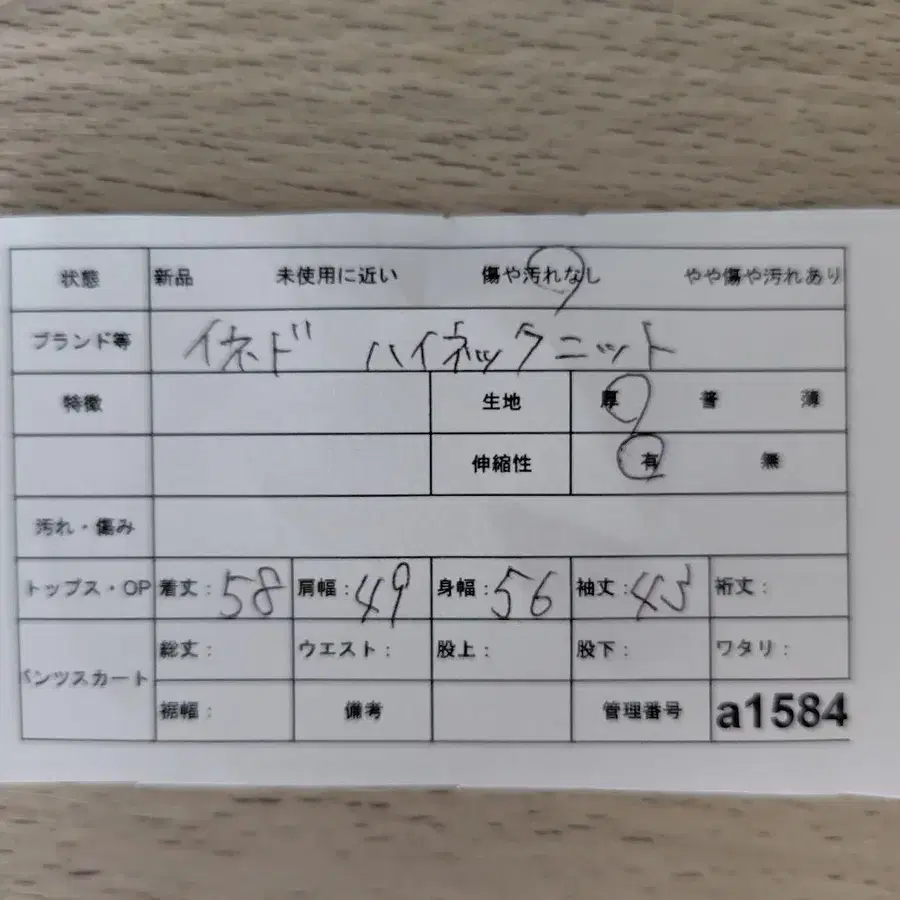 状態 新品 未使用に近い 傷や汚れなし やや傷や汚れあり
ブランド等 イネド ハイネックニット
特徴 生地 厚 普 薄
伸縮性 有 無
汚れ・傷み
トップス・OP 着丈：58 肩幅：49 身幅：56 袖丈：45 裄丈：
パンツスカート 総丈： ウエスト： 股上： 股下： ワタリ：
裾幅： 備考 管理番号 a1584